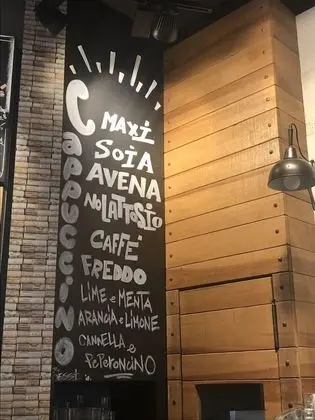 Cappuccino
MAXI
SOIA
AVENA
NOLATTOSIO
CAFFÉ
FREDDO
LIME e MENTA
ARANCIA e LIMONE
CANNELLA e
PEPERONCINO